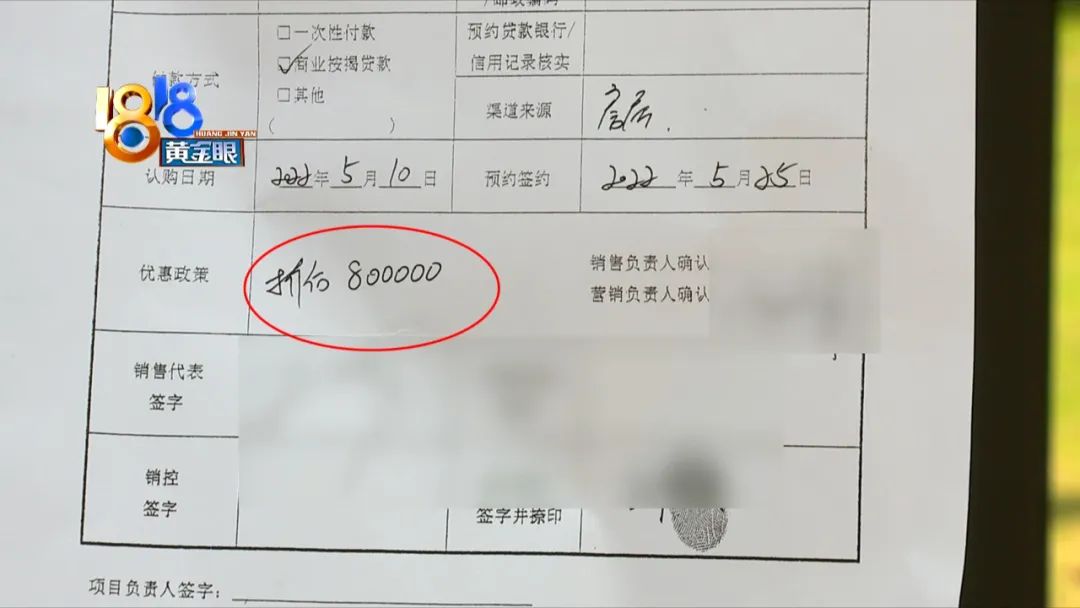 /邮政编码
付款方式
□一次性付款
☑商业按揭贷款
□其他
( )
预约贷款银行/
信用记录核实
渠道来源
1818
HUANG JIN YAN
黄金眼
认购日期
2022年5月10日
预约签约
2022年5月25日
优惠政策
折后 800000
销售负责人确认
营销负责人确认
销售代表
签字
销控
签字
签字并捺印
项目负责人签字：